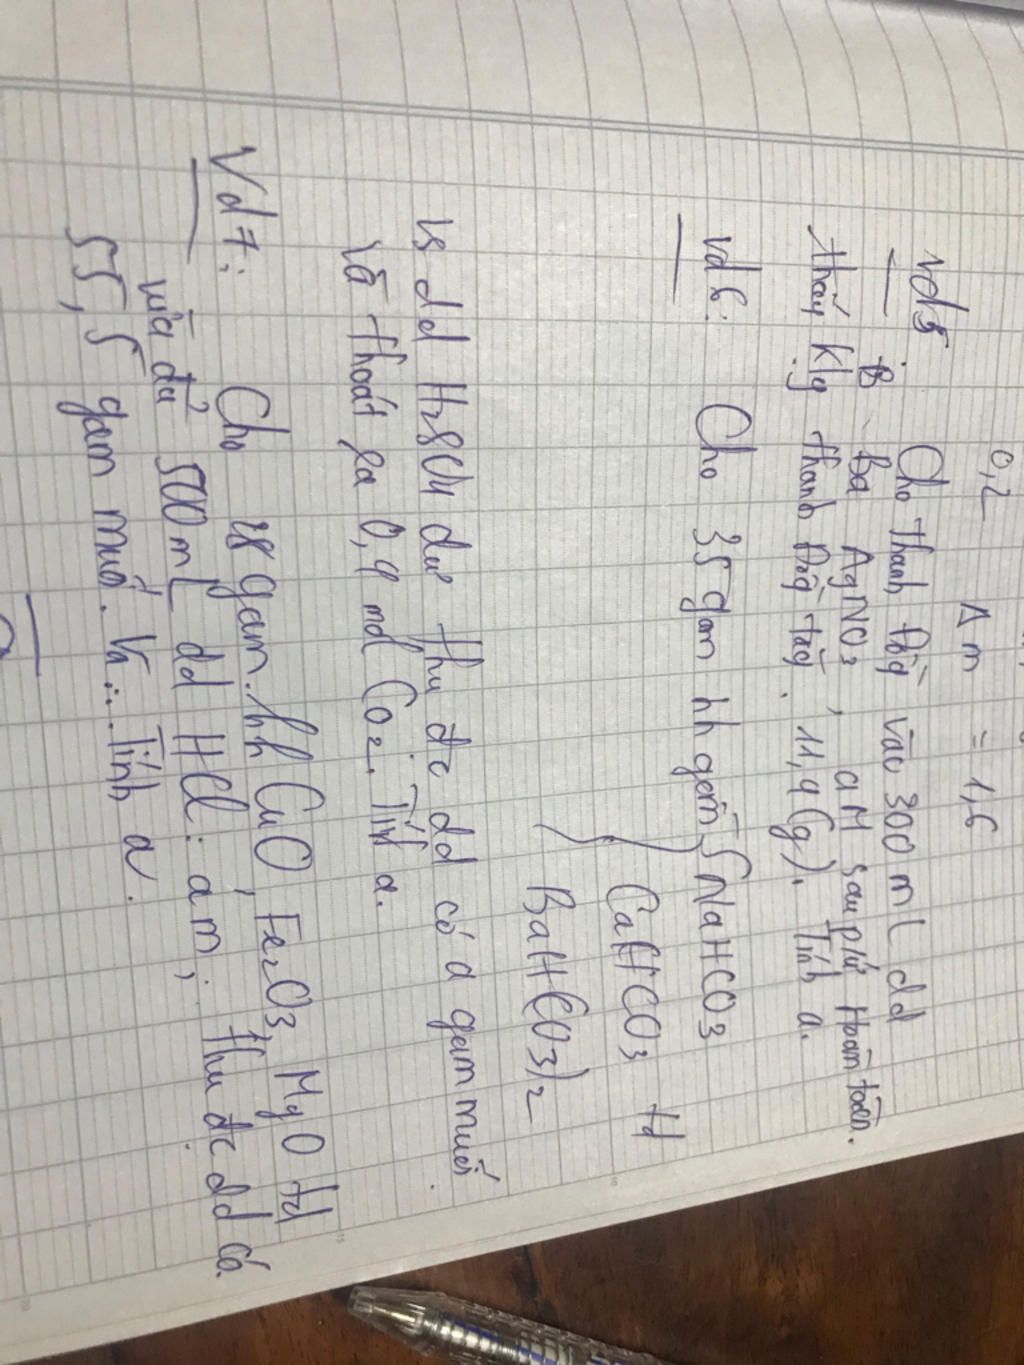 0,2 Δm = 1,6
vd5 : Cho thanh Đồng vào 300 ml dd
AgNO3, aM sau pứ Hoàn toàn.
thấy klg thanh Đồng tăng 11,4 (g). Tính a.
vd 6: Cho 35 gam hh gồm { NaHCO3
CaHCO3 td
Ba(HCO3)2
vs dd H2SO4 dư thu đc dd có a gam muối
và thoát ra 0,4 mol CO2. Tính a.
Vd 7: Cho 28 gam hh CuO, Fe2O3, MgO td
vừa đủ 500 ml dd HCl: aM, thu đc dd có
55,5 gam muối. Tính a.